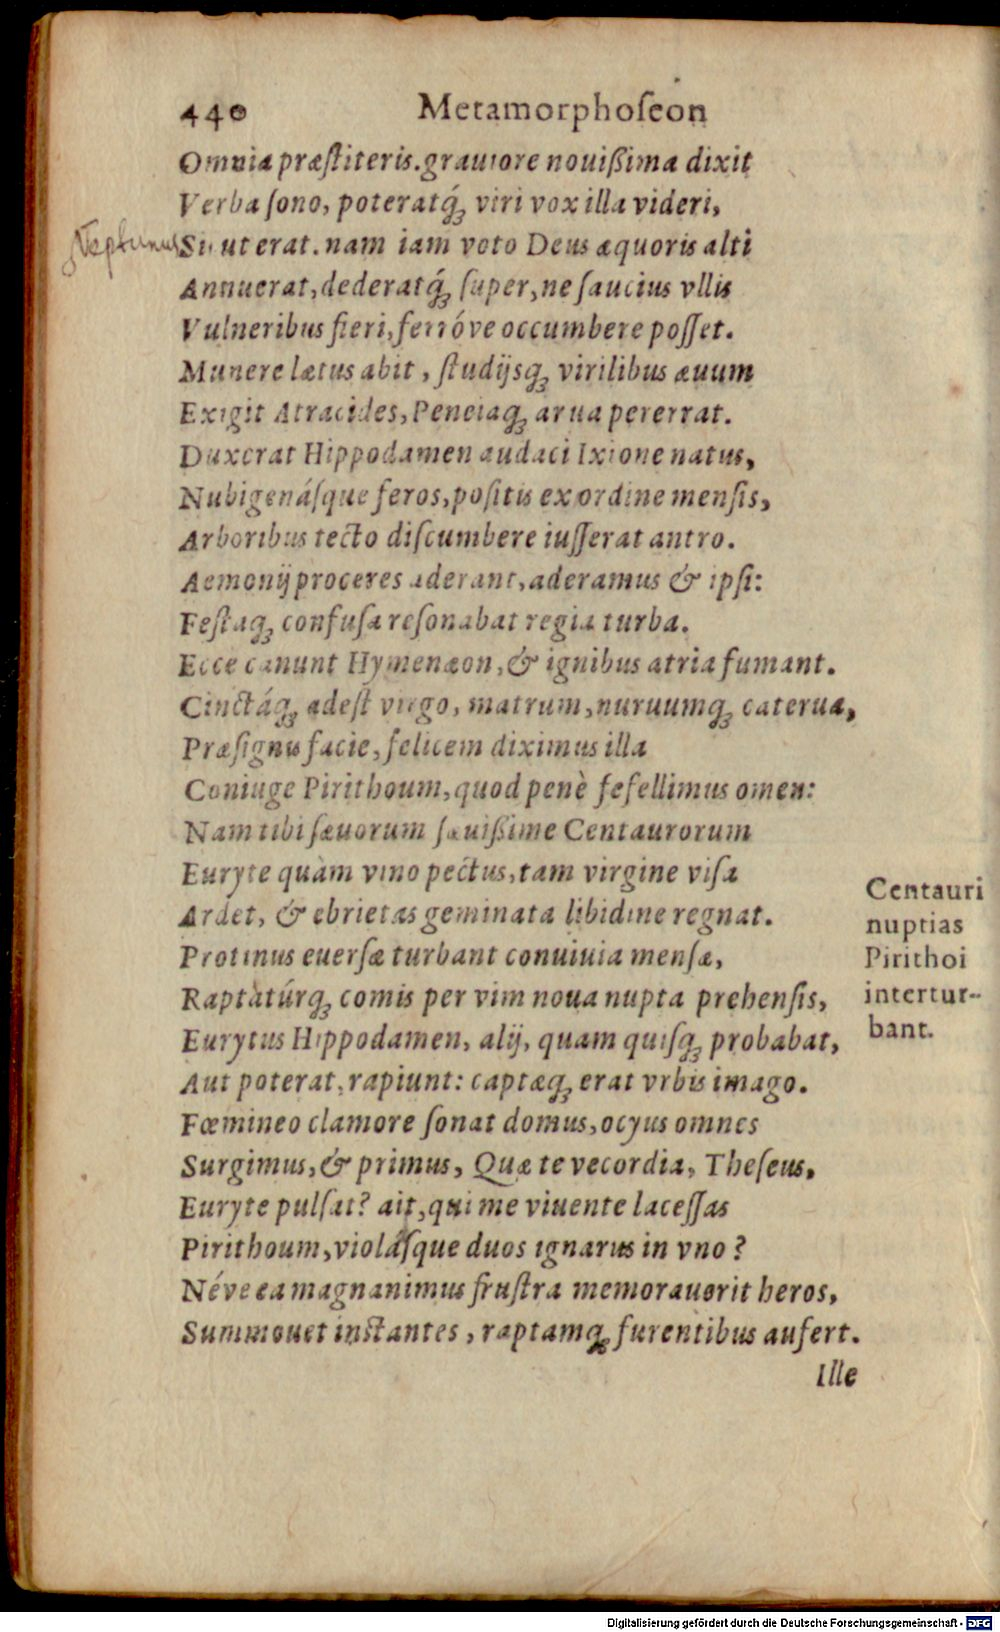 440 Metamorphoſeon
Omnia præſtiteris. grauiore nouißima dixit
Verba ſono, poteratq́ꝫ viri vox illa videri,
Neptunus
Sicut erat. nam iam voto Deus æquoris alti
Annuerat, dederatq́ꝫ ſuper, ne ſaucius vllis
Vulneribus fieri, ferróve occumbere poſſet.
Munere lætus abit, ſtudijsqꝫ virilibus æuum
Exigit Atracides, Peneiaqꝫ arua pererrat.
Duxerat Hippodamen audaci Ixione natus,
Nubigenáſque feros, poſitis ex ordine menſis,
Arboribus tecto diſcumbere iuſſerat antro.
Aemonij proceres aderant, aderamus & ipſi:
Feſtaqꝫ confuſa reſonabat regia turba.
Ecce canunt Hymenæon, & ignibus atria fumant.
Cinctáqꝫ adeſt virgo, matrum, nuruumqꝫ caterua,
Præſignis facie, felicem diximus illa
Coniuge Pirithoum, quod penè fefellimus omen:
Nam tibi ſæuorum ſæuißime Centaurorum
Euryte quàm vino pectus, tam virgine viſa
Ardet, & ebrietas geminata libidine regnat.
Protinus euerſæ turbant conuiuia menſæ,
Raptatúrqꝫ comis per vim noua nupta prehenſis,
Eurytus Hippodamen, alij, quam quiſqꝫ probabat,
Aut poterat, rapiunt: captæqꝫ erat vrbis imago.
Fœmineo clamore ſonat domus, ocyus omnes
Surgimus, & primus, Quæ te vecordia, Theſeus,
Euryte pulſat? ait, qui me viuente laceſſas
Pirithoum, violáſque duos ignarus in vno?
Néve ea magnanimus fruſtra memorauerit heros,
Summouet inſtantes, raptamqꝫ furentibus aufert.
Ille
Centauri
nuptias
Pirithoi
intertur-
bant.
Digitalisierung gefördert durch die Deutsche Forschungsgemeinschaft - DFG